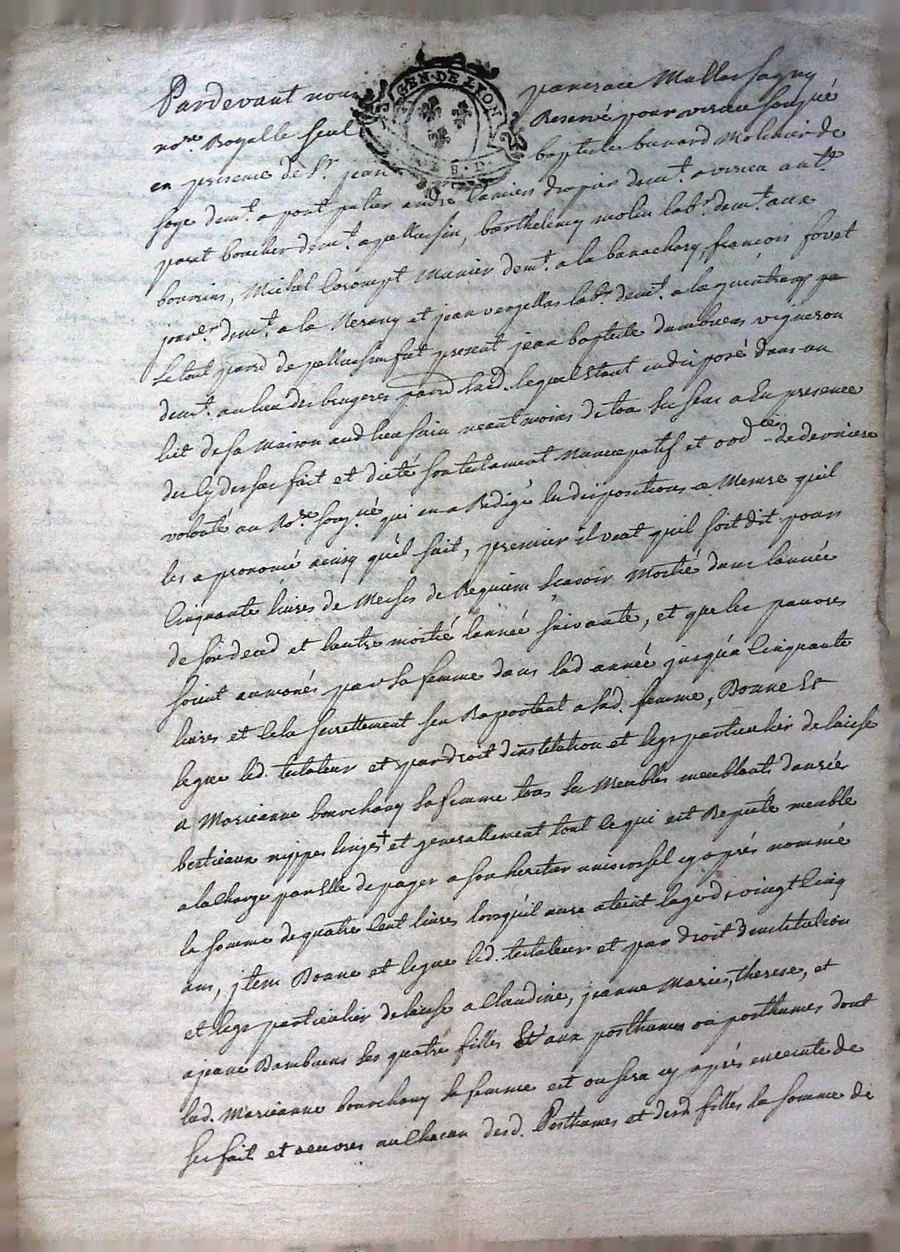 GEN·DE LYON
Pardevant nous pancrace Mallassagny
no.re Royalle seul Reservé pour virieu sousg.né
en presence de S.r jean baptiste bunard Molinier de
soye dem.t a pont palier andré lanier drapier dem.t a virieu ant.e
paret boucher dem.t a pellussin, barthelemy molin lab.r dem.t aux
bouvrins, Michel Munier dem.t a la françois fovet
jour.er dem.t a la et jean verzellas lab.r dem.t a la
Le tout par.d de pellussin fut present jean baptiste dambuens vigneron
dem.t au lieu des brugeres par.d lad. lequel Etant indisposé dans un
lit de sa Maison aud lieu sain neantmoins de tou ses sens a En presence
des Cy dessus fait et dicté son testament Nuncupatif et ord.re de derniere
volonté au No.re sousg.né qui en a Redigé les dispositions a Mesure qu'il
les a prononcé ainsy qu'il suit, premier il veut quil soit dit pour
Cinquante livres de Messes de Requiem scavoir Moitié dans lannée
de son deced et lautre moitié lannée suivante, et que les pauvres
soient aumonés par sa femme dans lad année jusqua Cinquante
livres et Cela secrettement sen Raportant a sad. femme, Donne Et
legue led. testateur et par droit dinstitution et legs particulier delaisse
a Marieanne bouchany sa femme tous ses Meubles meublants danrée
bestieaux nippes linges + et generallement tout ce qui est Reputé meuble
a la Charge par Elle de payer a son heritier universsel cy après nommé
la somme de quatre Cent livres lorsquil aura ateint lage de vingt Cinq
ans, jtem Donne et legue led. testateur et par droit dinstitution
et legs particulier delaisse a Claudine, jeanne Marie, therese, et
a jeane Dambuens ses quatre filles Et aux posthumes ou posthumes dont
lad. Marieanne bouchany sa femme est ou sera cy après enceinte de
ses fait et oeuvres au Chacun desd. Posthumes et desd filles la somme de